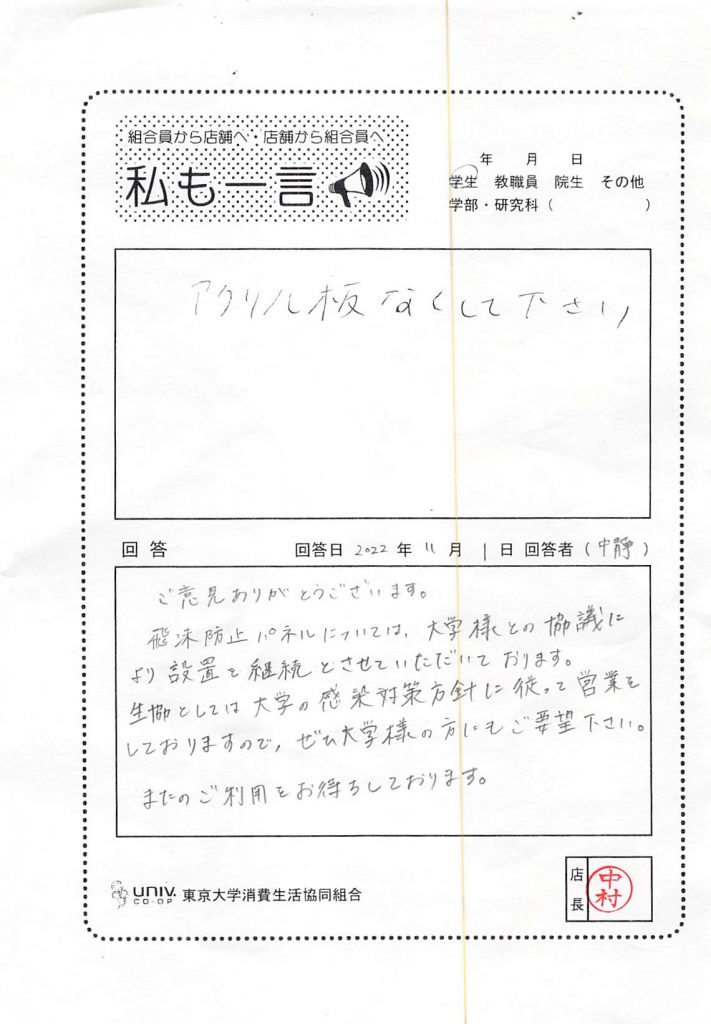 組合員から店舗へ・店舗から組合員へ
私も一言
年 月 日
学生 教職員 院生 その他
学部・研究科( )
アクリル板なくして下さい
回答 回答日 2022 年 11 月 1 日 回答者(中静)
ご意見ありがとうございます。
飛沫防止パネルについては、大学様との協議に
より設置を継続とさせていただいております。
生協としては大学の感染対策方針に従って営業を
しておりますので、ぜひ大学様の方にもご要望下さい。
またのご利用をお待ちしております。
UNIV.
CO-OP
東京大学消費生活協同組合
店長
中村